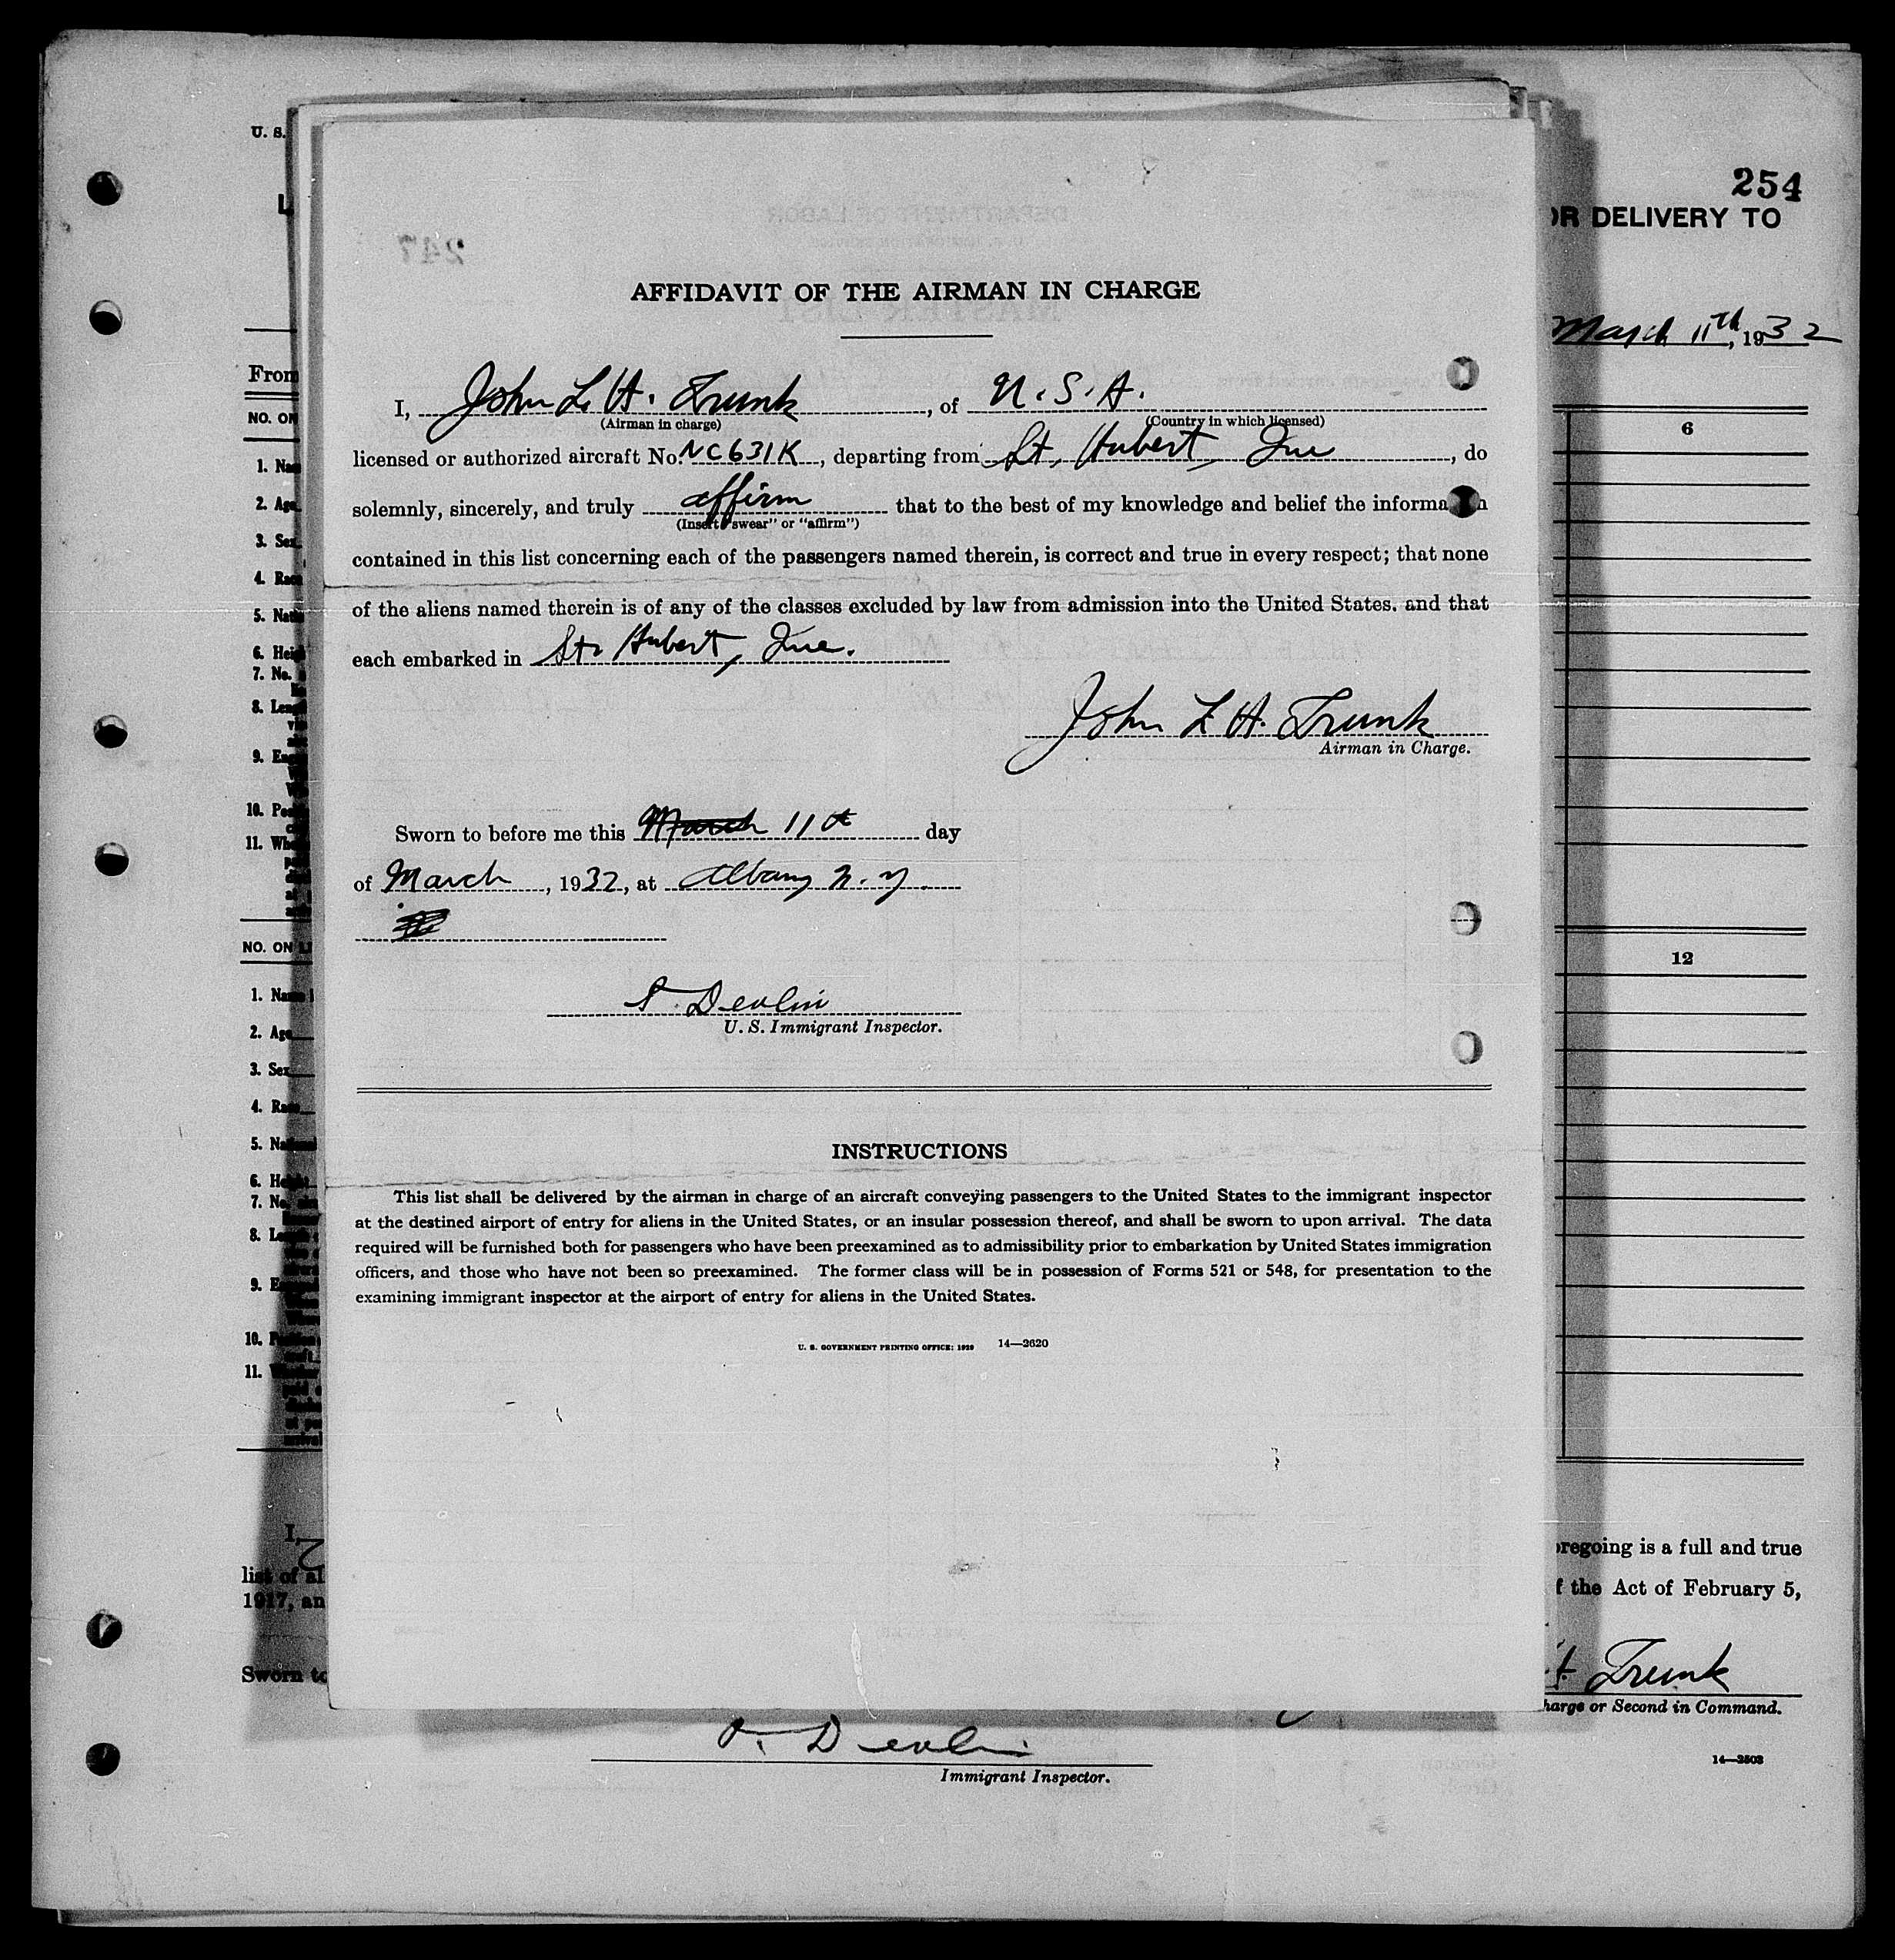 254
U. S.
OR DELIVERY TO
247
AFFIDAVIT OF THE AIRMAN IN CHARGE
March 11th, 1932
I, John L. H. Trunk, of U.S.A.
(Airman in charge) (Country in which licensed)
licensed or authorized aircraft No. NC631K, departing from St. Hubert, Que, do
solemnly, sincerely, and truly affirm that to the best of my knowledge and belief the informa n
(Insert "swear" or "affirm")
contained in this list concerning each of the passengers named therein, is correct and true in every respect; that none
of the aliens named therein is of any of the classes excluded by law from admission into the United States. and that
each embarked in St. Hubert, Que.
John L H. Trunk
Airman in Charge.
Sworn to before me this March 11th day
of March, 1932, at Albany N. Y.
Devlin
U. S. Immigrant Inspector.
INSTRUCTIONS
This list shall be delivered by the airman in charge of an aircraft conveying passengers to the United States to the immigrant inspector
at the destined airport of entry for aliens in the United States, or an insular possession thereof, and shall be sworn to upon arrival. The data
required will be furnished both for passengers who have been preexamined as to admissibility prior to embarkation by United States immigration
officers, and those who have not been so preexamined. The former class will be in possession of Forms 521 or 548, for presentation to the
examining immigrant inspector at the airport of entry for aliens in the United States.
U. S. GOVERNMENT PRINTING OFFICE: 1929 14—2620
From
NO. ON
1. Nam
2. Age
3. Sex
4. Race
5. Natio
6. Heig
7. No.
8. Leng
10. Pos
11. Wh
6
NO. ON LI
1. Name
2. Age
3. Sex
4. Race
5. National
6. Height
7. No.
8. L
9. E
10. P
11. W
12
I,
list of al
1917, an
Sworn to
oregoing is a full and true
f the Act of February 5,
H. Trunk
harge or Second in Command.
14—2503
Devlin
Immigrant Inspector.